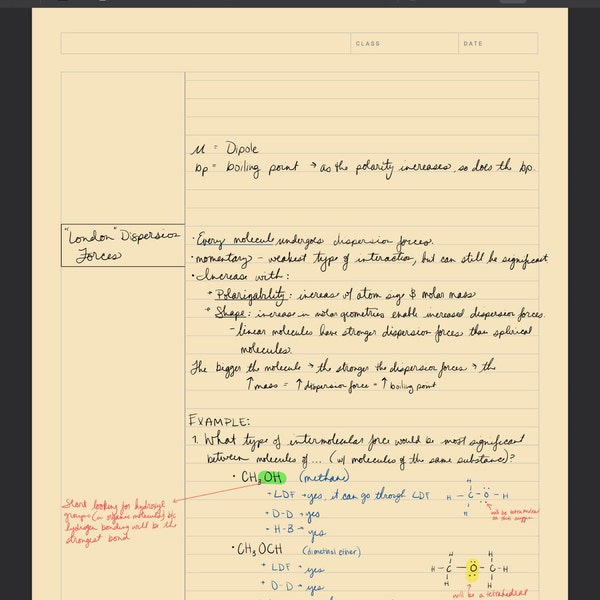 CLASS
DATE
μ = Dipole
bp = boiling point → as the polarity increases, so does the bp.
"London" Dispersion
Forces
• Every molecule undergoes dispersion forces.
• momentary - weakest type of interaction, but can still be significant
• Increase with:
* Polarizability: increase w/ atom size & molar mass
* Shape: increase in molar geometries enable increased dispersion forces.
- linear molecules have stronger dispersion forces than spherical
molecules.
The bigger the molecule → the stronger the dispersion forces → the
↑ mass = ↑ dispersion force = ↑ boiling point
EXAMPLE:
1. What type of intermolecular force would be most significant
between molecules of ... (w/ molecules of the same substance)?
• CH3OH (methane)
• LDF → yes, it can go through LDF
• D-D → yes
• H-B → yes
H
H - C - O - H
H
will be tetrahedral
on this oxygen
Start looking for hydroxyl
groups (in organic molecules) b/c
hydrogen bonding will be the
strongest bond
• CH3OCH (dimethyl ether)
• LDF → yes
• D-D → yes
H H
H - C - O - C - H
H H
will be a tetrahedral